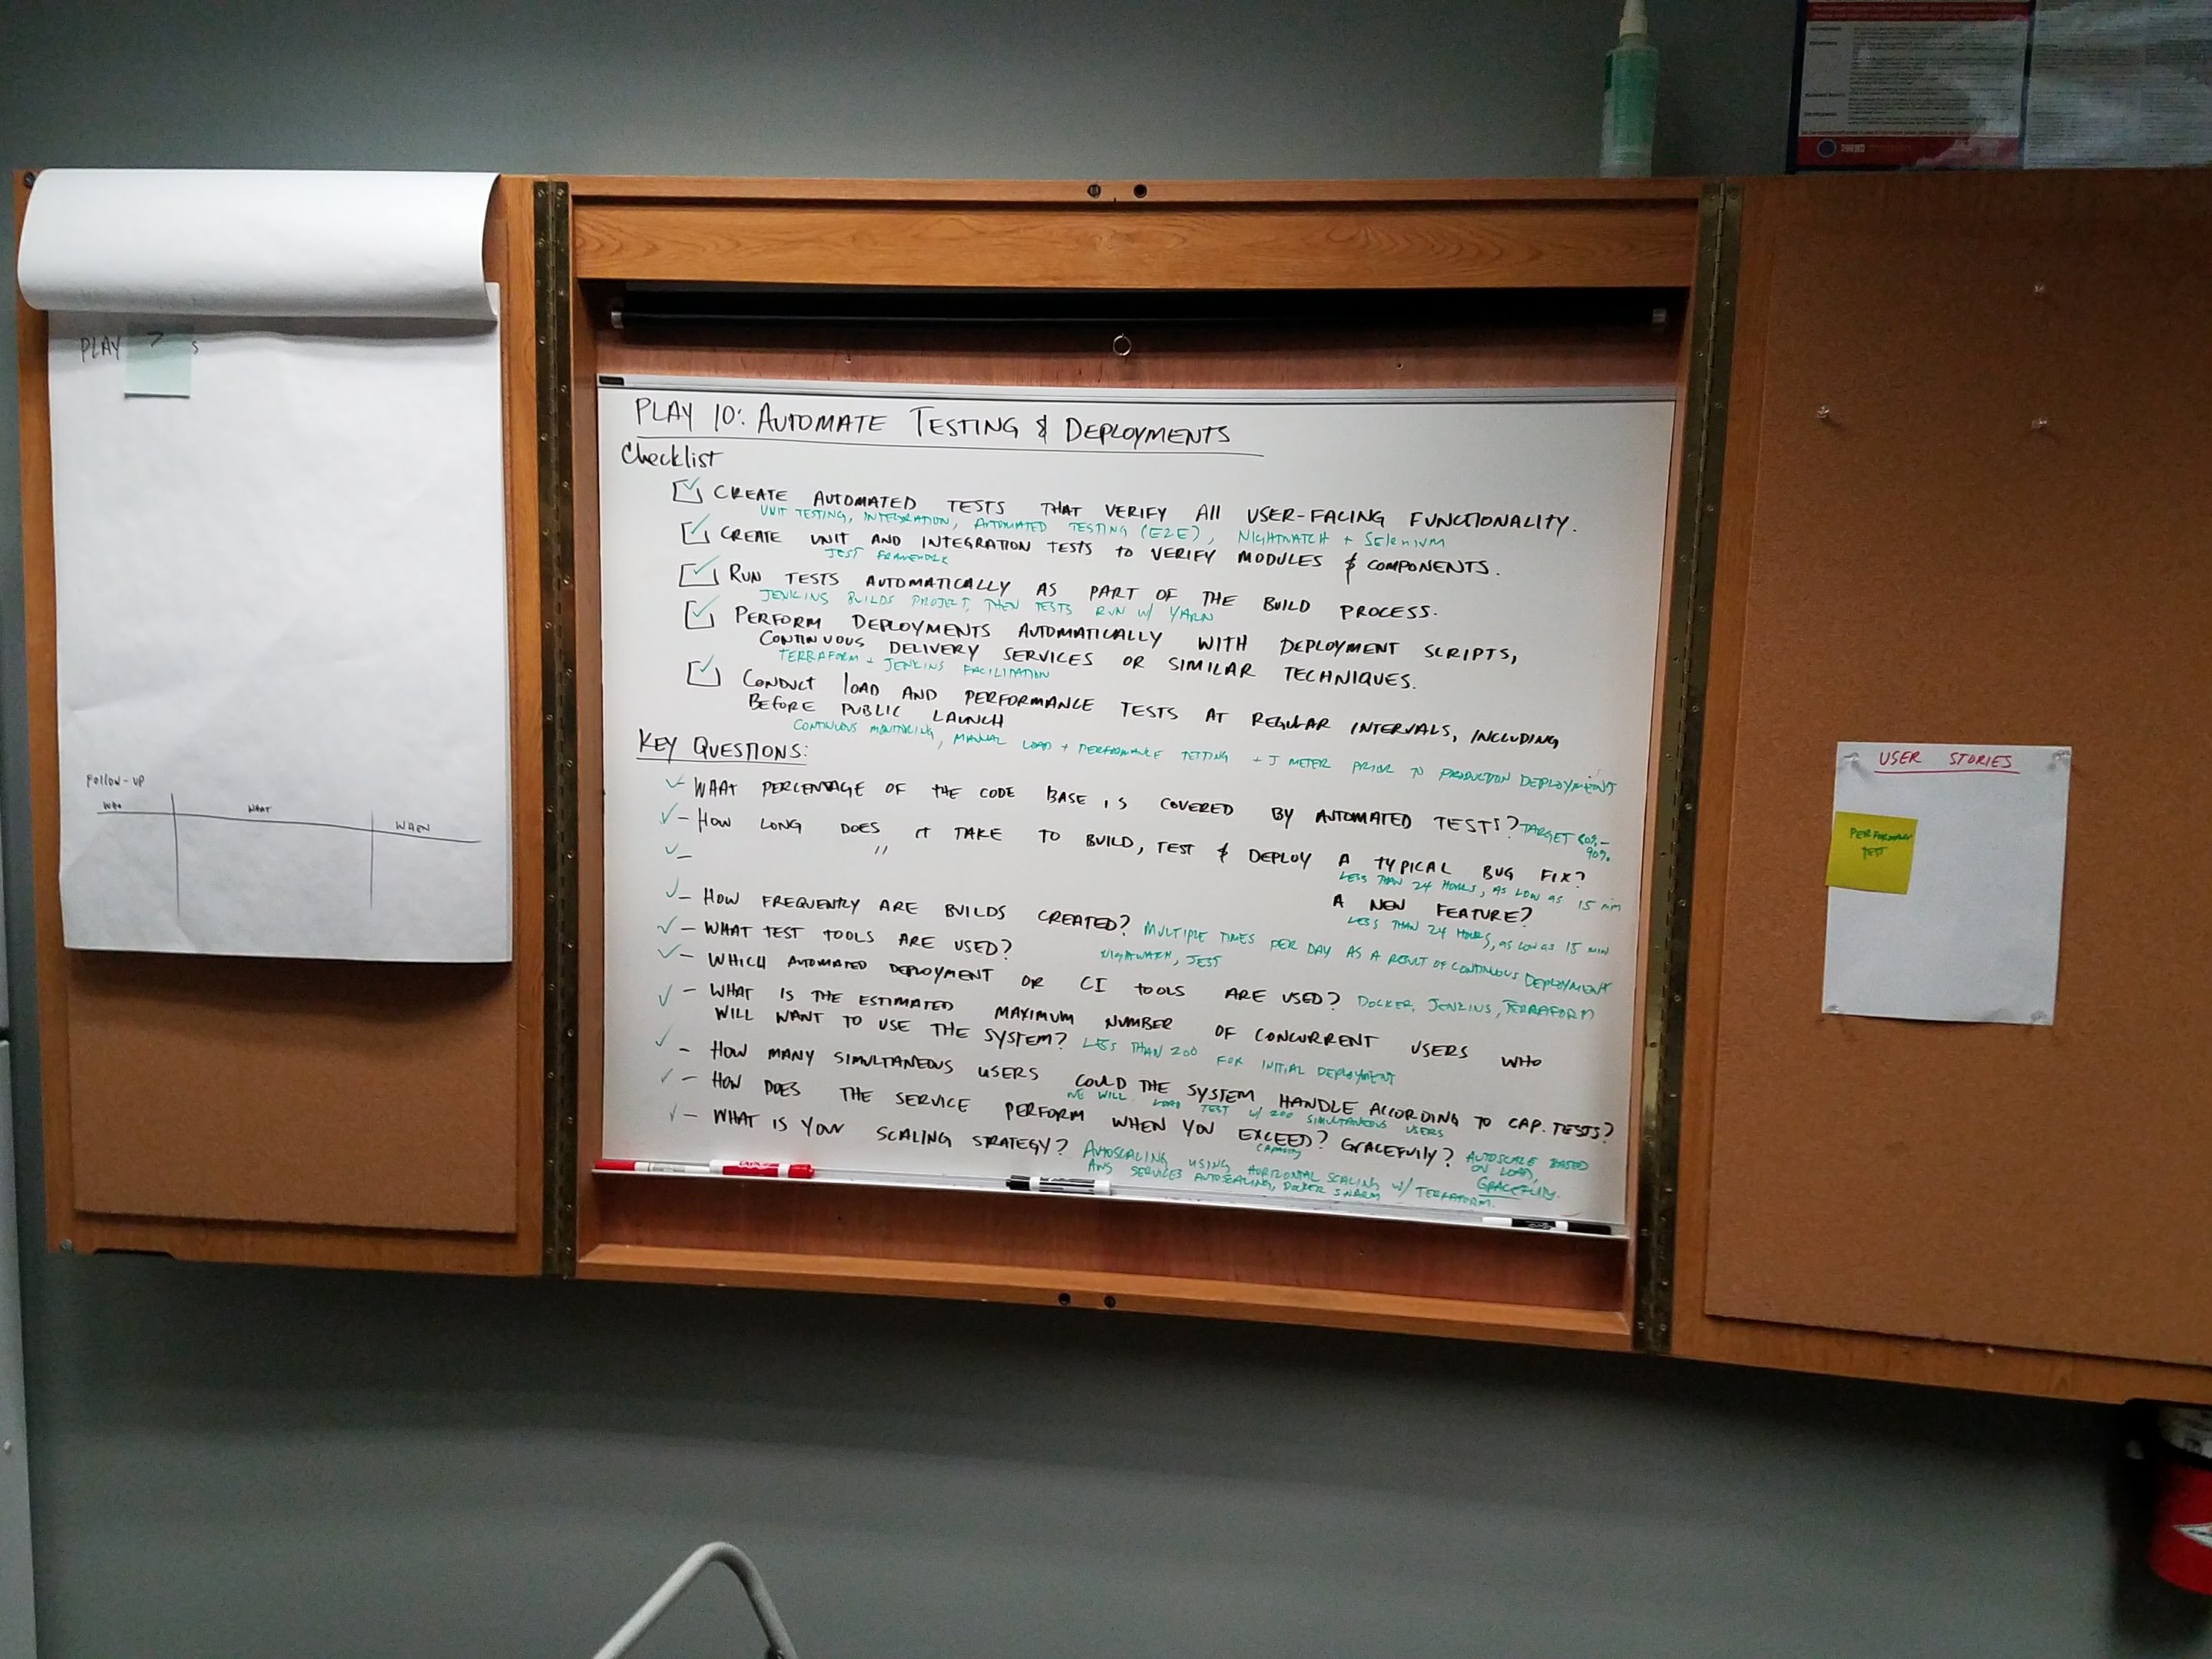 PLAY 7 S
FOLLOW-UP
WHO WHAT WHEN
PLAY 10: AUTOMATE TESTING & DEPLOYMENTS
Checklist
CREATE AUTOMATED TESTS THAT VERIFY All USER-FACING FUNCTIONALITY.
UNIT TESTING, INTEGRATION, AUTOMATED TESTING (E2E), NIGHTWATCH + SElENIUM
CREATE UNIT AND INTEGRATION TESTS to VERIFY MODULES & COMPONENTS.
JEST FRAMEWORK
RUN TESTS AUTOMATICALLY AS PART OF THE BUILD PROCESS.
JENKINS BUILDS PROJECT, THEN TESTS RUN W/ YARN
PERFORM DEPLOYMENTS AUTOMATICALLY WITH DEPLOYMENT SCRIPTS,
CONTINUOUS DELIVERY SERVICES OR SIMILAR TECHNIQUES.
TERRAFORM + JENKINS FACILITATION
CONDUCT lOAD AND PERFORMANCE TESTS AT REGULAR INTERVALS, INCLUDING
BEFORE PUBLIC LAUNCH
CONTINUOUS MONITORING, MANUAL LOAD + PERFORMANCE TETTING + J METER PRIOR TO PRODUCTION DEPLOYMENT
KEY QUESTIONS:
- WHAT PERCENTAGE OF tHE CODE BASE IS COVERED BY AUTOMATED TESTS? TARGET 80%-
90%
- HOW LONG DOES IT TAKE TO BUILD, TEST & DEPLOY A TYPICAL BUG FIX?
LESS THAN 24 HOURS, AS LOW AS 15 MIN
- " A NEW FEATURE?
LESS THAN 24 HOURS, AS LOW AS 15 MIN
- HOW FREQUENTLY ARE BUILDS CREATED? MULTIPLE TIMES PER DAY AS A RESULT OF CONTINUOUS DEPLOYMENT
- WHAT TEST TOOLS ARE USED? NIGHTWATCH, JEST
- WHICH AUTOMATED DEPLOYMENT OR CI tOOLS ARE USED? DOCKER, JENKINS, TERRAFORM
- WHAT IS THE ESTIMATED MAXIMUM NUMBER OF CONCURRENT USERS WHO
WILL WANT TO USE THE SYSTEM? LESS THAN 200 FOR INITIAL DEPLOYMENT
- HOW MANY SIMULTANEOUS USERS COULD THE SYSTEM HANDLE ACCORDING TO CAP. TESTS?
WE WILL LOAD TEST W/ 200 SIMULTANEOUS USERS
- HOW DOES THE SERVICE PERFORM WHEN YOU EXCEED? GRACEFULLY? AUTOSCALE BASED
CAPACITY ON LOAD,
GRACEFULLY.
- WHAT IS YOUR SCALING STRATEGY? AUTOSCALING USING HORIZONTAL SCALING W/ TERRAFORM.
AWS SERVICES AUTOSCALING, DOCKER SWARM
USER STORIES
PERFORMANCE
TEST